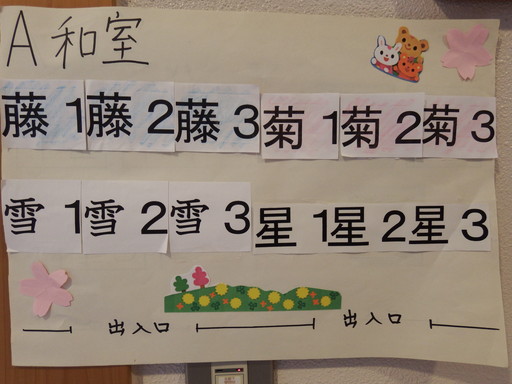 A 和室
藤 1 藤 2 藤 3 菊 1 菊 2 菊 3
雪 1 雪 2 雪 3 星 1 星 2 星 3
出入口 出入口